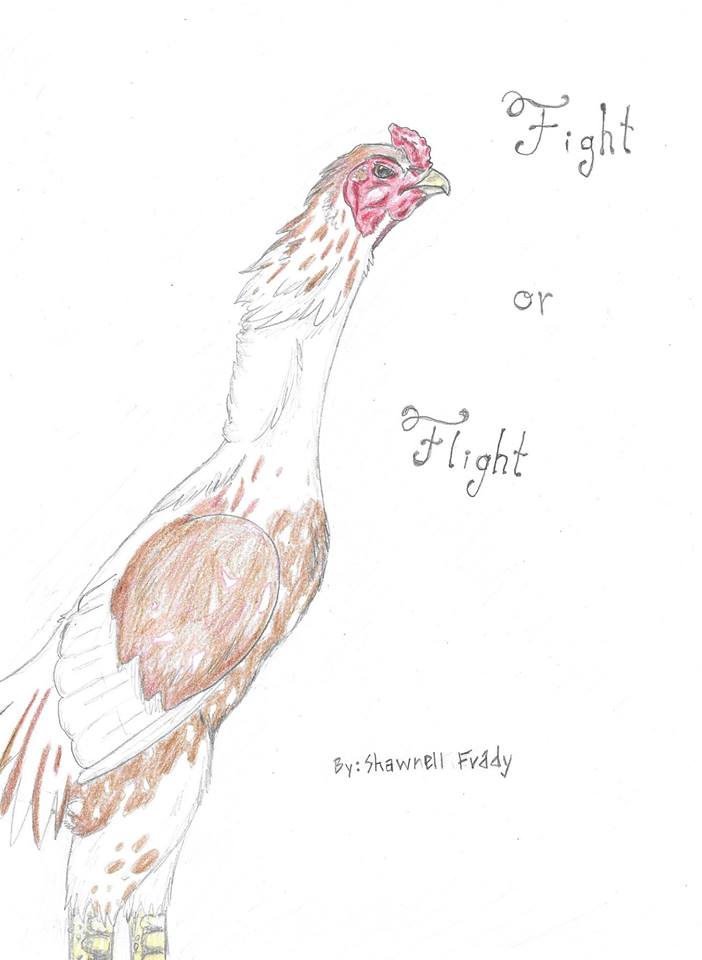 Fight
or
Flight
By: Shawnell Frady